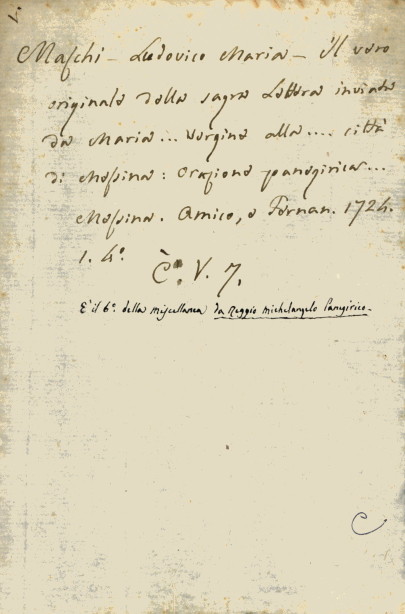 1.
Maschi - Ludovico Maria - il vero
originale della sagra Lettera inviata
da Maria... Vergine alla.... città
di Messina: Orazione panegirica...
Messina. Amico, e Fernan. 1724.
1. 4°.
C. V. 7.
È il 6°. della miscellanea da Reggio Michelangelo Panegirico.
C